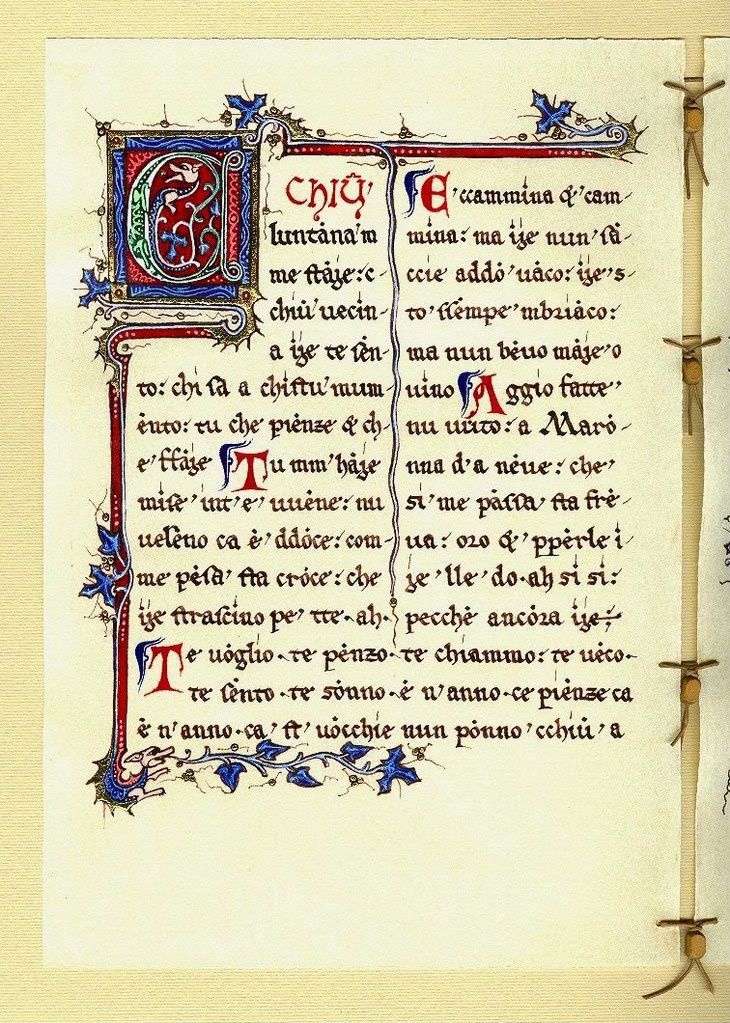 CCHIÙ'
luntàna m
me stàje: c-
chiù vecin-
a ije te sèn-
to: chi sà a chistu mum-
ènto: tu che piènze & ch-
e' ffàje Tu mm'hàje
mise' int'e' vvène: nu
velèno ca è' ddóce: com-
me pèsa' sta cróce: che
ije strascino pe' tte·ah·
E' ccammina & cam-
mina: ma ije nun' sà-
ccie addò' vàco: ije s-
to' ssèmpe' mbriàco:
ma nun bèvo màje o
vino Aggio fatte'
nu vuto: a Maró-
nna d'a nève: che'
si' me pàssa' sta frè-
va: oro & pperle i-
je' lle' do·ah si si:
pecchè ancòra ije
Te vòglio·te pènzo·te chiammo: te vèco·
te sènto·te sònno·è n'anno·ce piènze ca
è n'anno·ca st'uòcchie nun pònno' cchiù' a